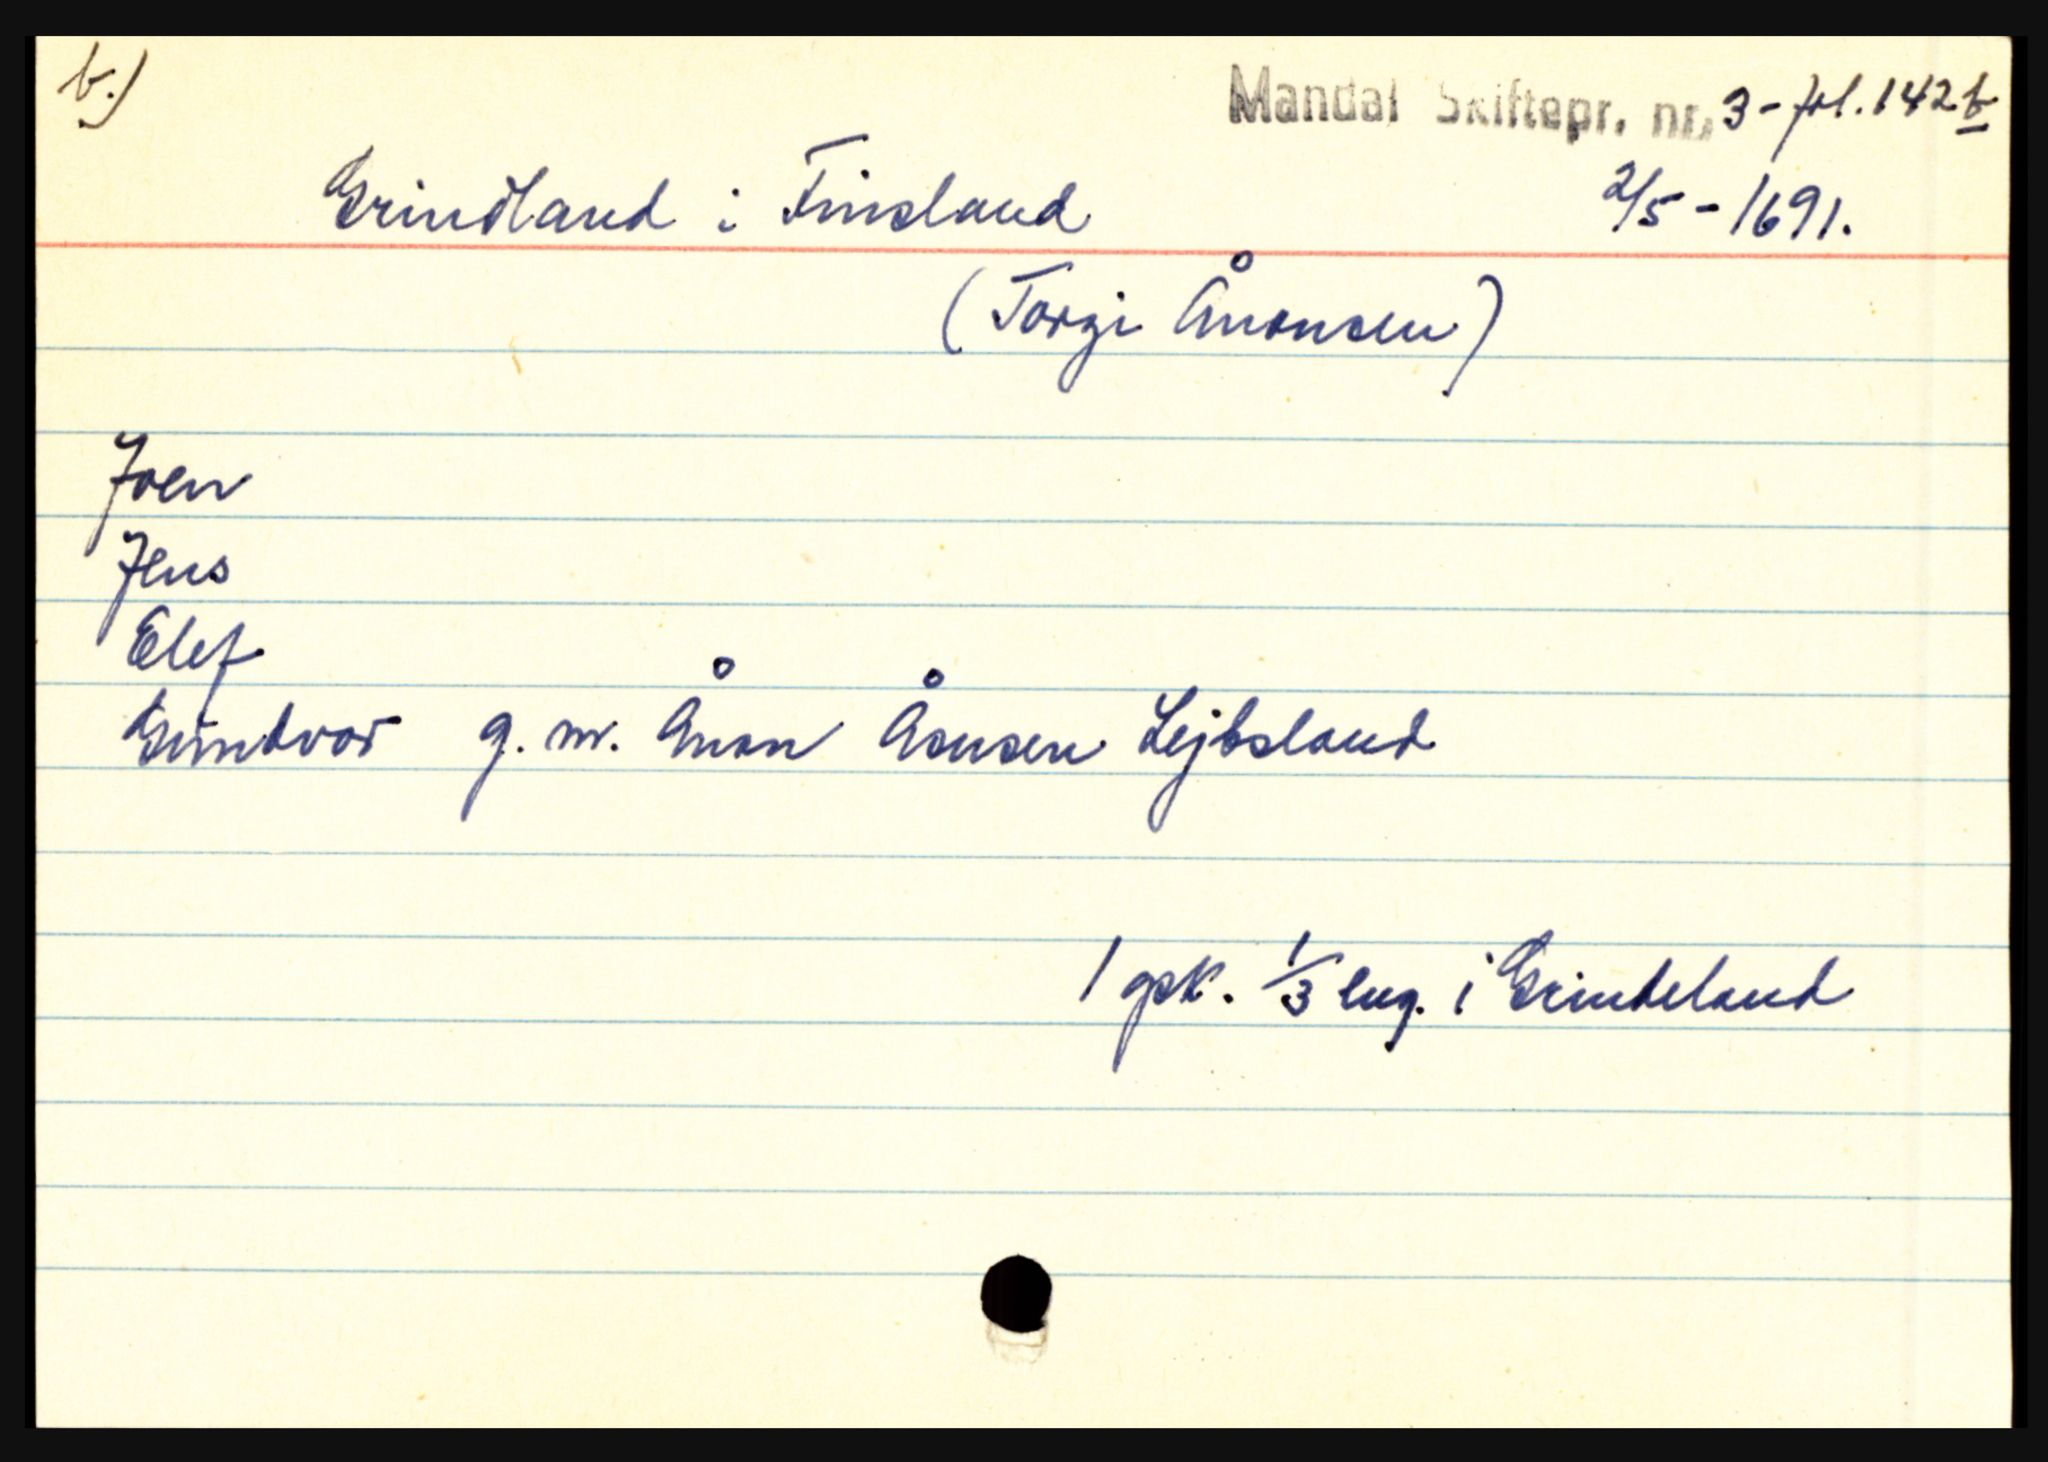 b.)
Mandal Skiftepr. nr. 3 - fol. 142 b
Grindland i Finsland 2/5 - 1691.
(Torgi Ånonsen)
Joen
Jens
Elef
Gundvor g. m. Ånon Åsnsen Lejbsland
1 gsk. 1/3 eng. i Grindeland